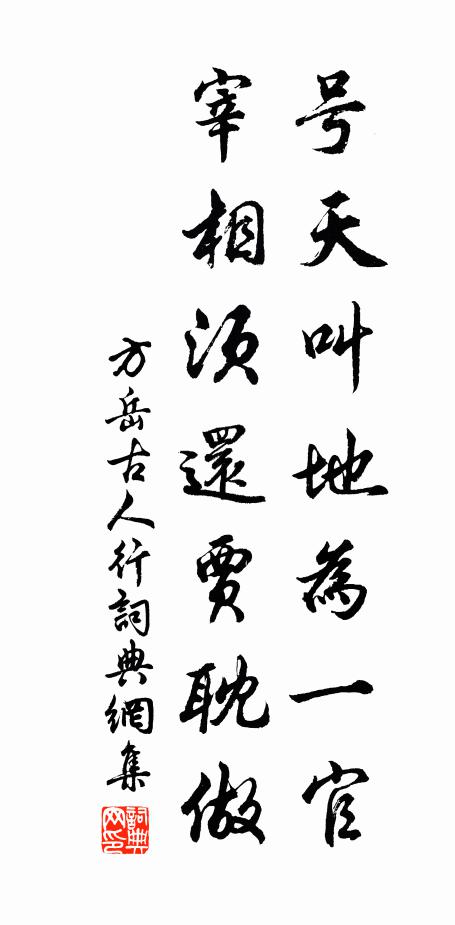 号天叫地為一官
宰相須還賈耽做
方岳古人行詞典網集
詞典
网印